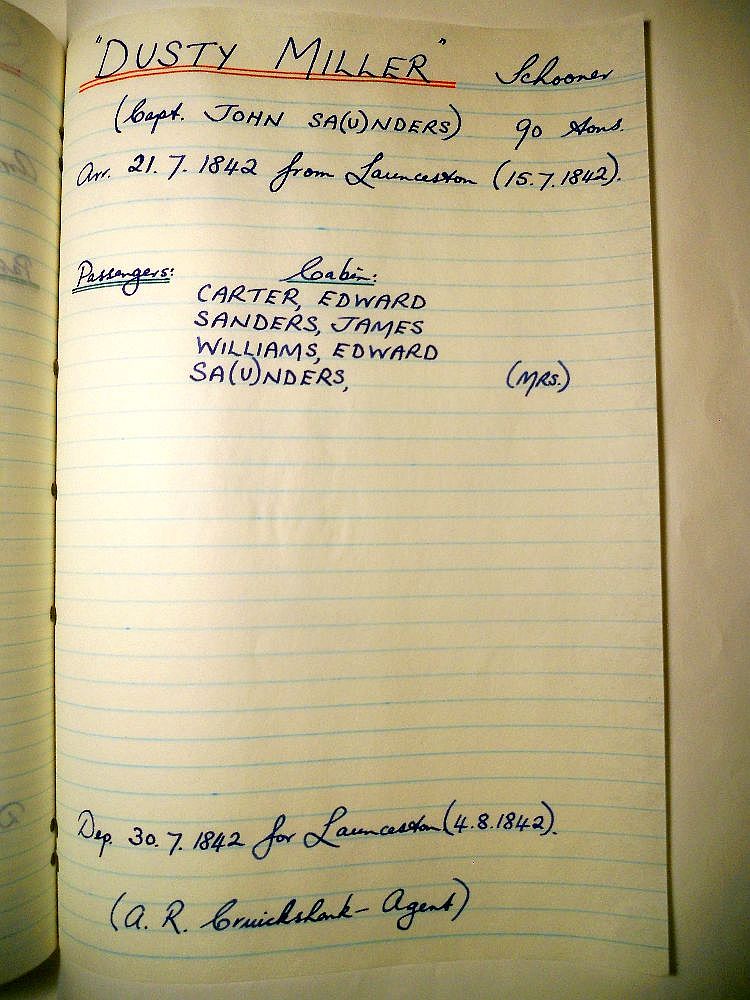 "DUSTY MILLER" Schooner
(Capt. JOHN SA(U)NDERS) 90 tons.
Arr. 21.7.1842 from Launceston (15.7.1842).
Passengers: Cabin:
CARTER, EDWARD
SANDERS, JAMES
WILLIAMS, EDWARD
SA(U)NDERS, (MRS.)
Dep. 30.7.1842 for Launceston (4.8.1842).
(A. R. Cruickshank - Agent)